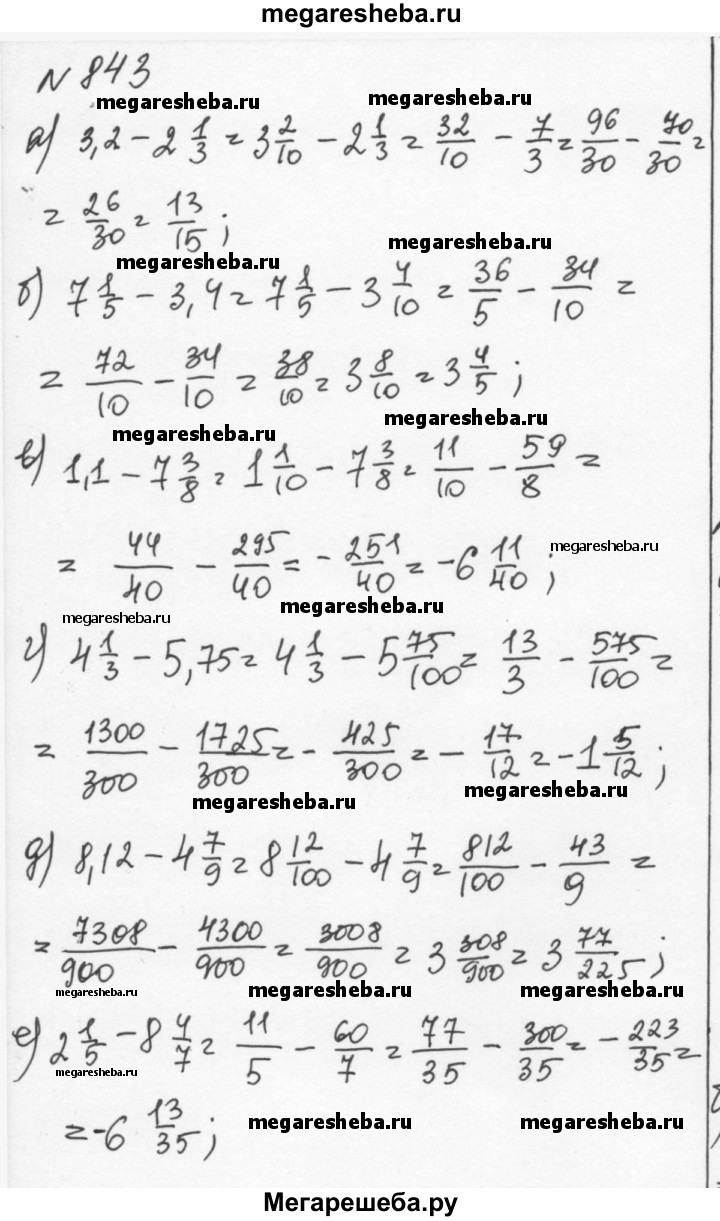 megaresheba.ru
N 843
megaresheba.ru megaresheba.ru
а) 3,2 - 2 1/3 = 3 2/10 - 2 1/3 = 32/10 - 7/3 = 96/30 - 70/30 =
= 26/30 = 13/15 ;
megaresheba.ru megaresheba.ru
б) 7 1/5 - 3,4 = 7 1/5 - 3 4/10 = 36/5 - 34/10 =
= 72/10 - 34/10 = 38/10 = 3 8/10 = 3 4/5 ;
megaresheba.ru megaresheba.ru
в) 1,1 - 7 3/8 = 1 1/10 - 7 3/8 = 11/10 - 59/8 =
= 44/40 - 295/40 = - 251/40 = -6 11/40 ;
megaresheba.ru
megaresheba.ru megaresheba.ru
г) 4 1/3 - 5,75 = 4 1/3 - 5 75/100 = 13/3 - 575/100 =
= 1300/300 - 1725/300 = - 425/300 = - 17/12 = -1 5/12 ;
megaresheba.ru megaresheba.ru
д) 8,12 - 4 7/9 = 8 12/100 - 4 7/9 = 812/100 - 43/9 =
= 7308/900 - 4300/900 = 3008/900 = 3 308/900 = 3 77/225 ;
megaresheba.ru megaresheba.ru megaresheba.ru
е) 2 1/5 - 8 4/7 = 11/5 - 60/7 = 77/35 - 300/35 = - 223/35 =
megaresheba.ru
= -6 13/35 ;
megaresheba.ru megaresheba.ru
Мегарешеба.ру